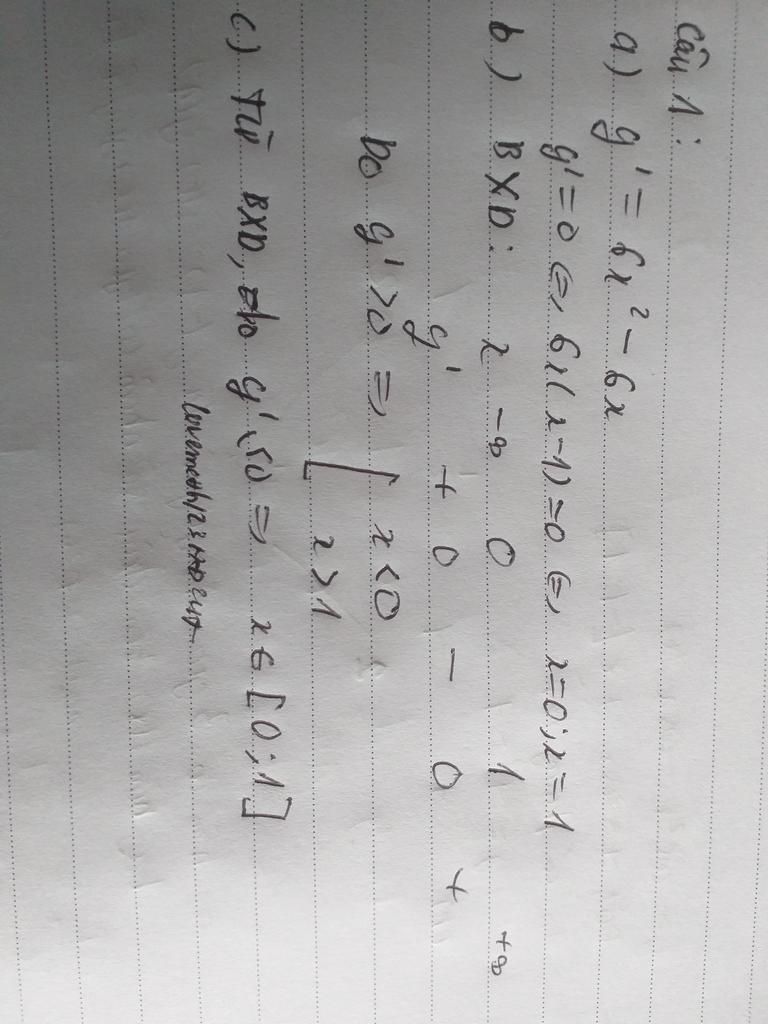 Câu 1:
a) y' = 6x² - 6x
y' = 0 ⇔ 6x(x-1) = 0 ⇔ x=0; x=1
b) BXD: x -∞ 0 1 +∞
y' + 0 - 0 +
Do y' >0 ⇒ [ x<0
x>1
c) Từ BXD, do y' ≤0 ⇒ x ∈ [0;1]